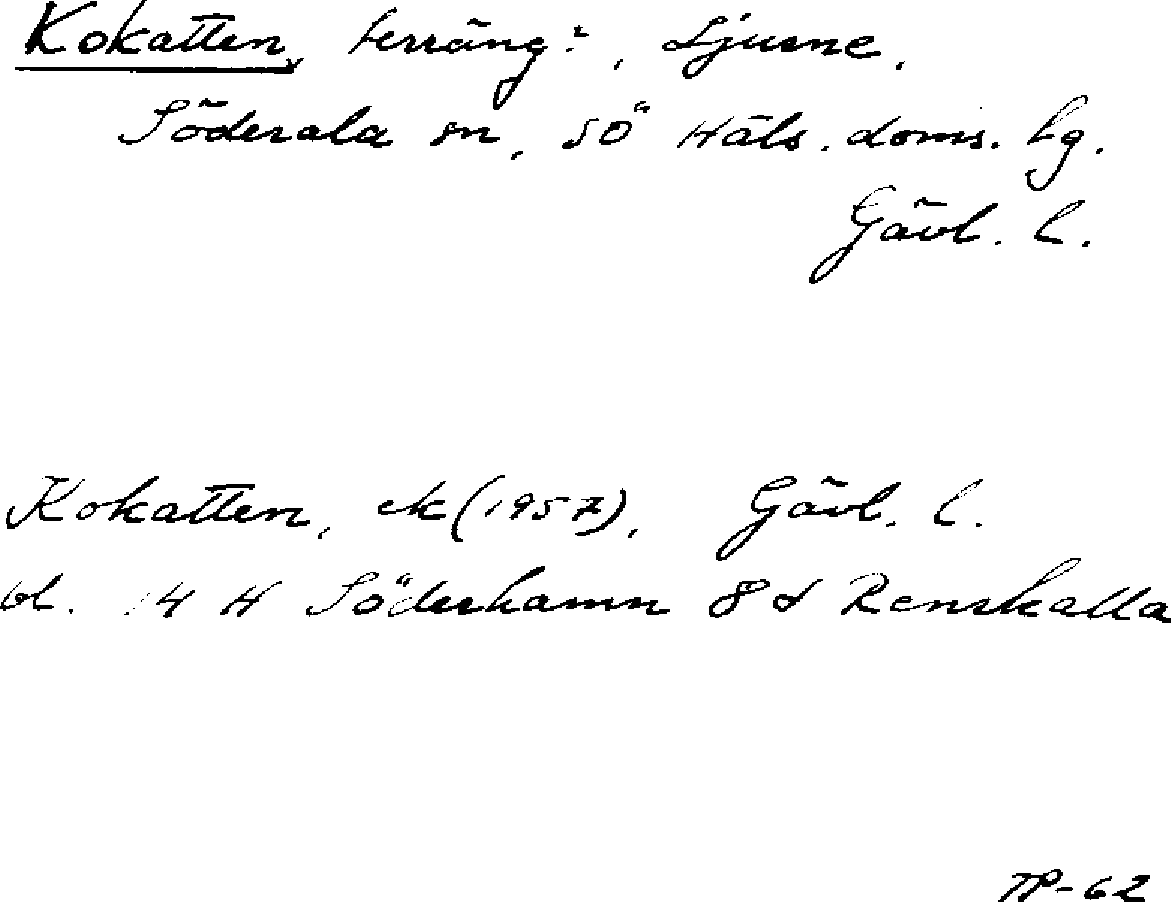 Kokatten, terräng?, Ljusne,
Söderala sn, SÖ Häls. doms. lg.
Gävl. l.
Kokatten, ek (1957), Gävl. l.
bl. 14 H Söderhamn 8 d Renskalla
TP-62